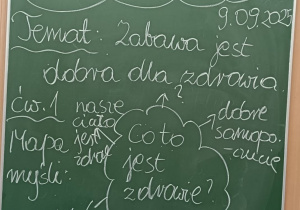 9.09.2025
Temat: Zabawa jest
dobra dla zdrowia.
?
ćw. 1
nasze
ciało
jest
zdrowe
dobre
samopo-
czucie
Mapa
myśli:
Co to
jest
zdrowie?